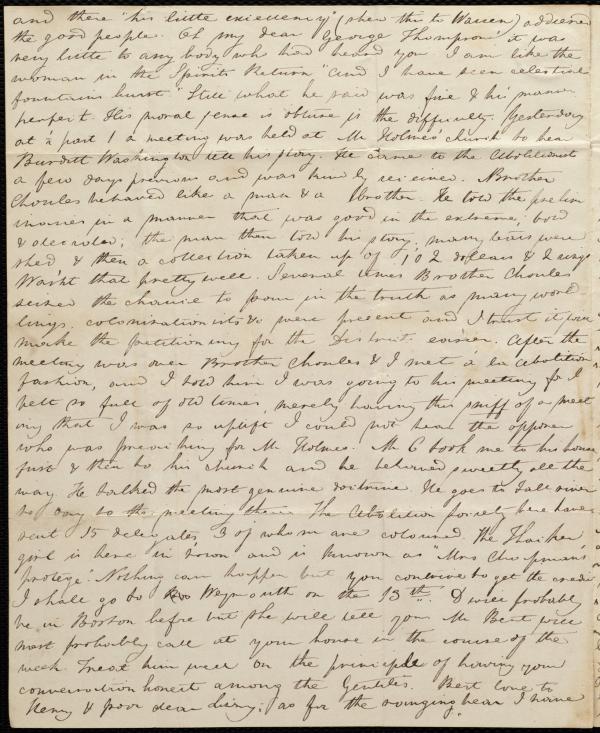 and there "his little excellency" (shew this to Warren) addressed
the good people. Oh my dear George Thompson! it was
very little to any body who had heard you I am like the
woman in the Spirits Return "and I have seen celestial
fountains burst." Still what he said was fine & his manner
perfect. His moral sense is obtuse is the difficulty. Yesterday
at ¼ past 1 a meeting was held at Mr Holmes' church to hear
Burditt Washington tell his story. He came to the Abolitionists
a few days previous and was kindly received. Brother
Choules behaved like a man & a brother. He told the prelim
inaries in a manner that was good in the extreme; bold
& decided; the man then told his story, many tears were
shed & then a collection taken up of 102 dollars & 2 rings
Was'nt that pretty well. Several times Brother Choules
seized the chance to pour in the truth as many world
lings, colonizationists &c were present and I trust it will
make the petitioning for the District easier. After the
meeting was over Brother Choules & I met a la abolition
fashion, and I told him I was going to his meeting for I
felt so full of old times, merely having this sniff of a meet
ing that I was so uplift I could not hear the opposer
who was preaching for Mr Holmes. Mr C took me to his house
first & then to his church and he behaved sweetly all the
way. He talked the most genuine doctrine. He goes to Fall river
to day to the meeting there. The Abolition Society here have
sent 15 delegates, 3 of whom are coloured. The Thacher
girl is here in town and is known as "Mrs Chapman's
protegé." Nothing can happen but you contrive to get the credit
I shall go to Weymouth on the 13th. D will probably
be in Boston before but she will tell you. Mr Bent will
most probably call at your house in the course of the
week. Treat him well on the principle of having your
conversation honest among the Gentiles. Best love to
Henry & poor dear Lizzy; as for the ranging bear I have